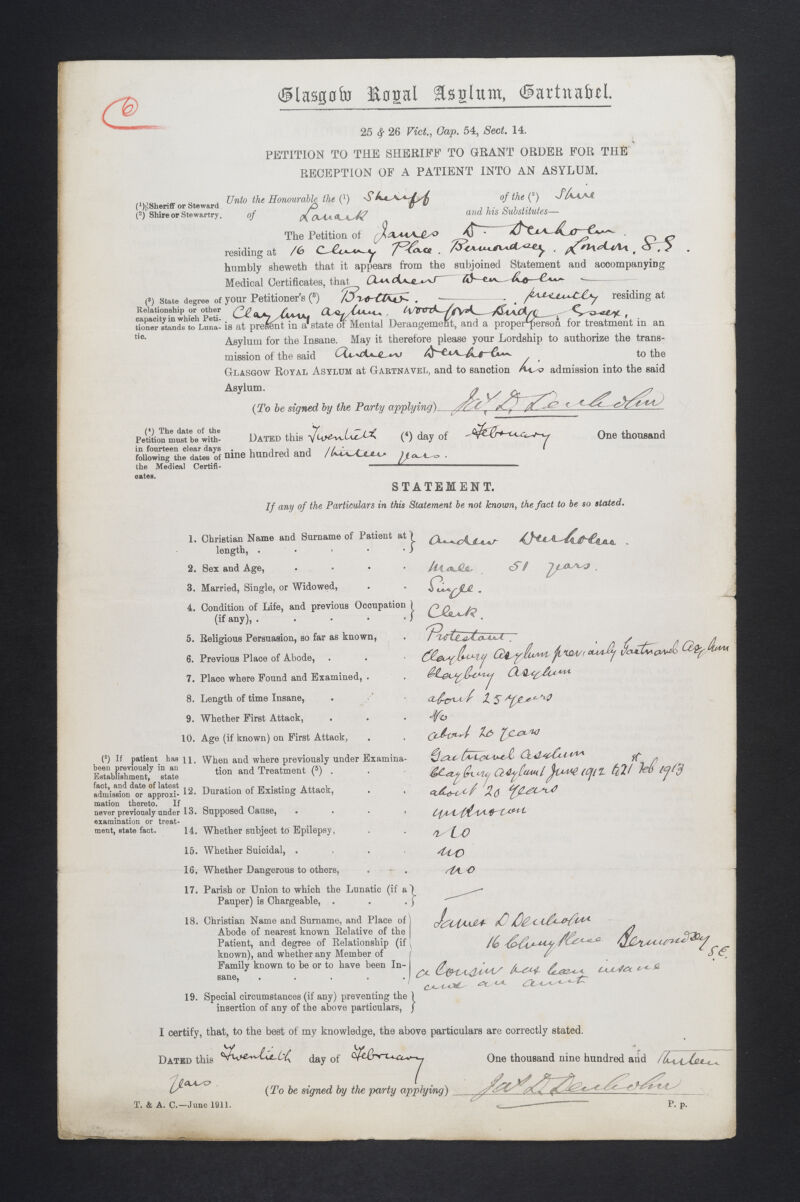 6
Glasgow Royal Asylum, Gartnavel.
25 & 26 Vict., Cap. 54, Sect. 14.
PETITION TO THE SHERIFF TO GRANT ORDER FOR THE
RECEPTION OF A PATIENT INTO AN ASYLUM.
(1) Sheriff or Steward
(2) Shire or Stewartry.
Unto the Honourable the (1) Sheriff of the (2) Shire
of Lanark and his Substitutes—
The Petition of James D. Denholm
residing at 16 Cluny Place. Bermondsey. London, S.E.
humbly sheweth that it appears from the subjoined Statement and accompanying
Medical Certificates, that Andrew Denholm
(3) State degree of
Relationship or other
capacity in which Peti-
tioner stands to Luna-
tic.
your Petitioner's (3) Brother. presently residing at
Claybury Asylum. Woodford Bridge, Essex,
is at present in a state of Mental Derangement, and a proper person for treatment in an
Asylum for the Insane. May it therefore please your Lordship to authorize the trans-
mission of the said Andrew Denholm to the
GLASGOW ROYAL ASYLUM AT GARTNAVEL, and to sanction his admission into the said
Asylum.
(To be signed by the Party applying) Jas. D. Denholm
(4) The date of the
Petition must be with-
in fourteen clear days
following the dates of
the Medical Certifi-
cates.
DATED this Twentieth (4) day of February One thousand
nine hundred and thirteen years.
STATEMENT.
If any of the Particulars in this Statement be not known, the fact to be so stated.
1. Christian Name and Surname of Patient at
length, . . . . . Andrew Denholm.
2. Sex and Age, . . . . Male. 51 years.
3. Married, Single, or Widowed, . . Single.
4. Condition of Life, and previous Occupation
(if any), . . . . . Clerk.
5. Religious Persuasion, so far as known, . Protestant.
6. Previous Place of Abode, . . . Claybury Asylum previously Gartnavel Asylum
7. Place where Found and Examined, . . Claybury Asylum
8. Length of time Insane, . . . about 25 years
9. Whether First Attack, . . . No
10. Age (if known) on First Attack, . . about 20 years
(5) If patient has
been previously in an
Establishment, state
fact, and date of latest
admission or approxi-
mation thereto. If
never previously under
examination or treat-
ment, state fact.
11. When and where previously under Examina-
tion and Treatment (5) . . Gartnavel Asylum
Claybury Asylum June 1912 to 21st Feb 1913
12. Duration of Existing Attack, . . about 20 years
13. Supposed Cause, . . . . unknown
14. Whether subject to Epilepsy, . . No
15. Whether Suicidal, . . . . no
16. Whether Dangerous to others, . . . no
17. Parish or Union to which the Lunatic (if a
Pauper) is Chargeable, . . . —
18. Christian Name and Surname, and Place of
Abode of nearest known Relative of the
Patient, and degree of Relationship (if
known), and whether any Member of
Family known to be or to have been In-
sane, . . . . .
James D Denholm
16 Cluny Place Bermondsey
S.E.
a Cousin has been insane
and an aunt
19. Special circumstances (if any) preventing the
insertion of any of the above particulars,
I certify, that, to the best of my knowledge, the above particulars are correctly stated.
DATED this Twentieth day of February One thousand nine hundred and thirteen
years.
(To be signed by the party applying) Jas D. Denholm
T. & A. C.—June 1911.
P. p.